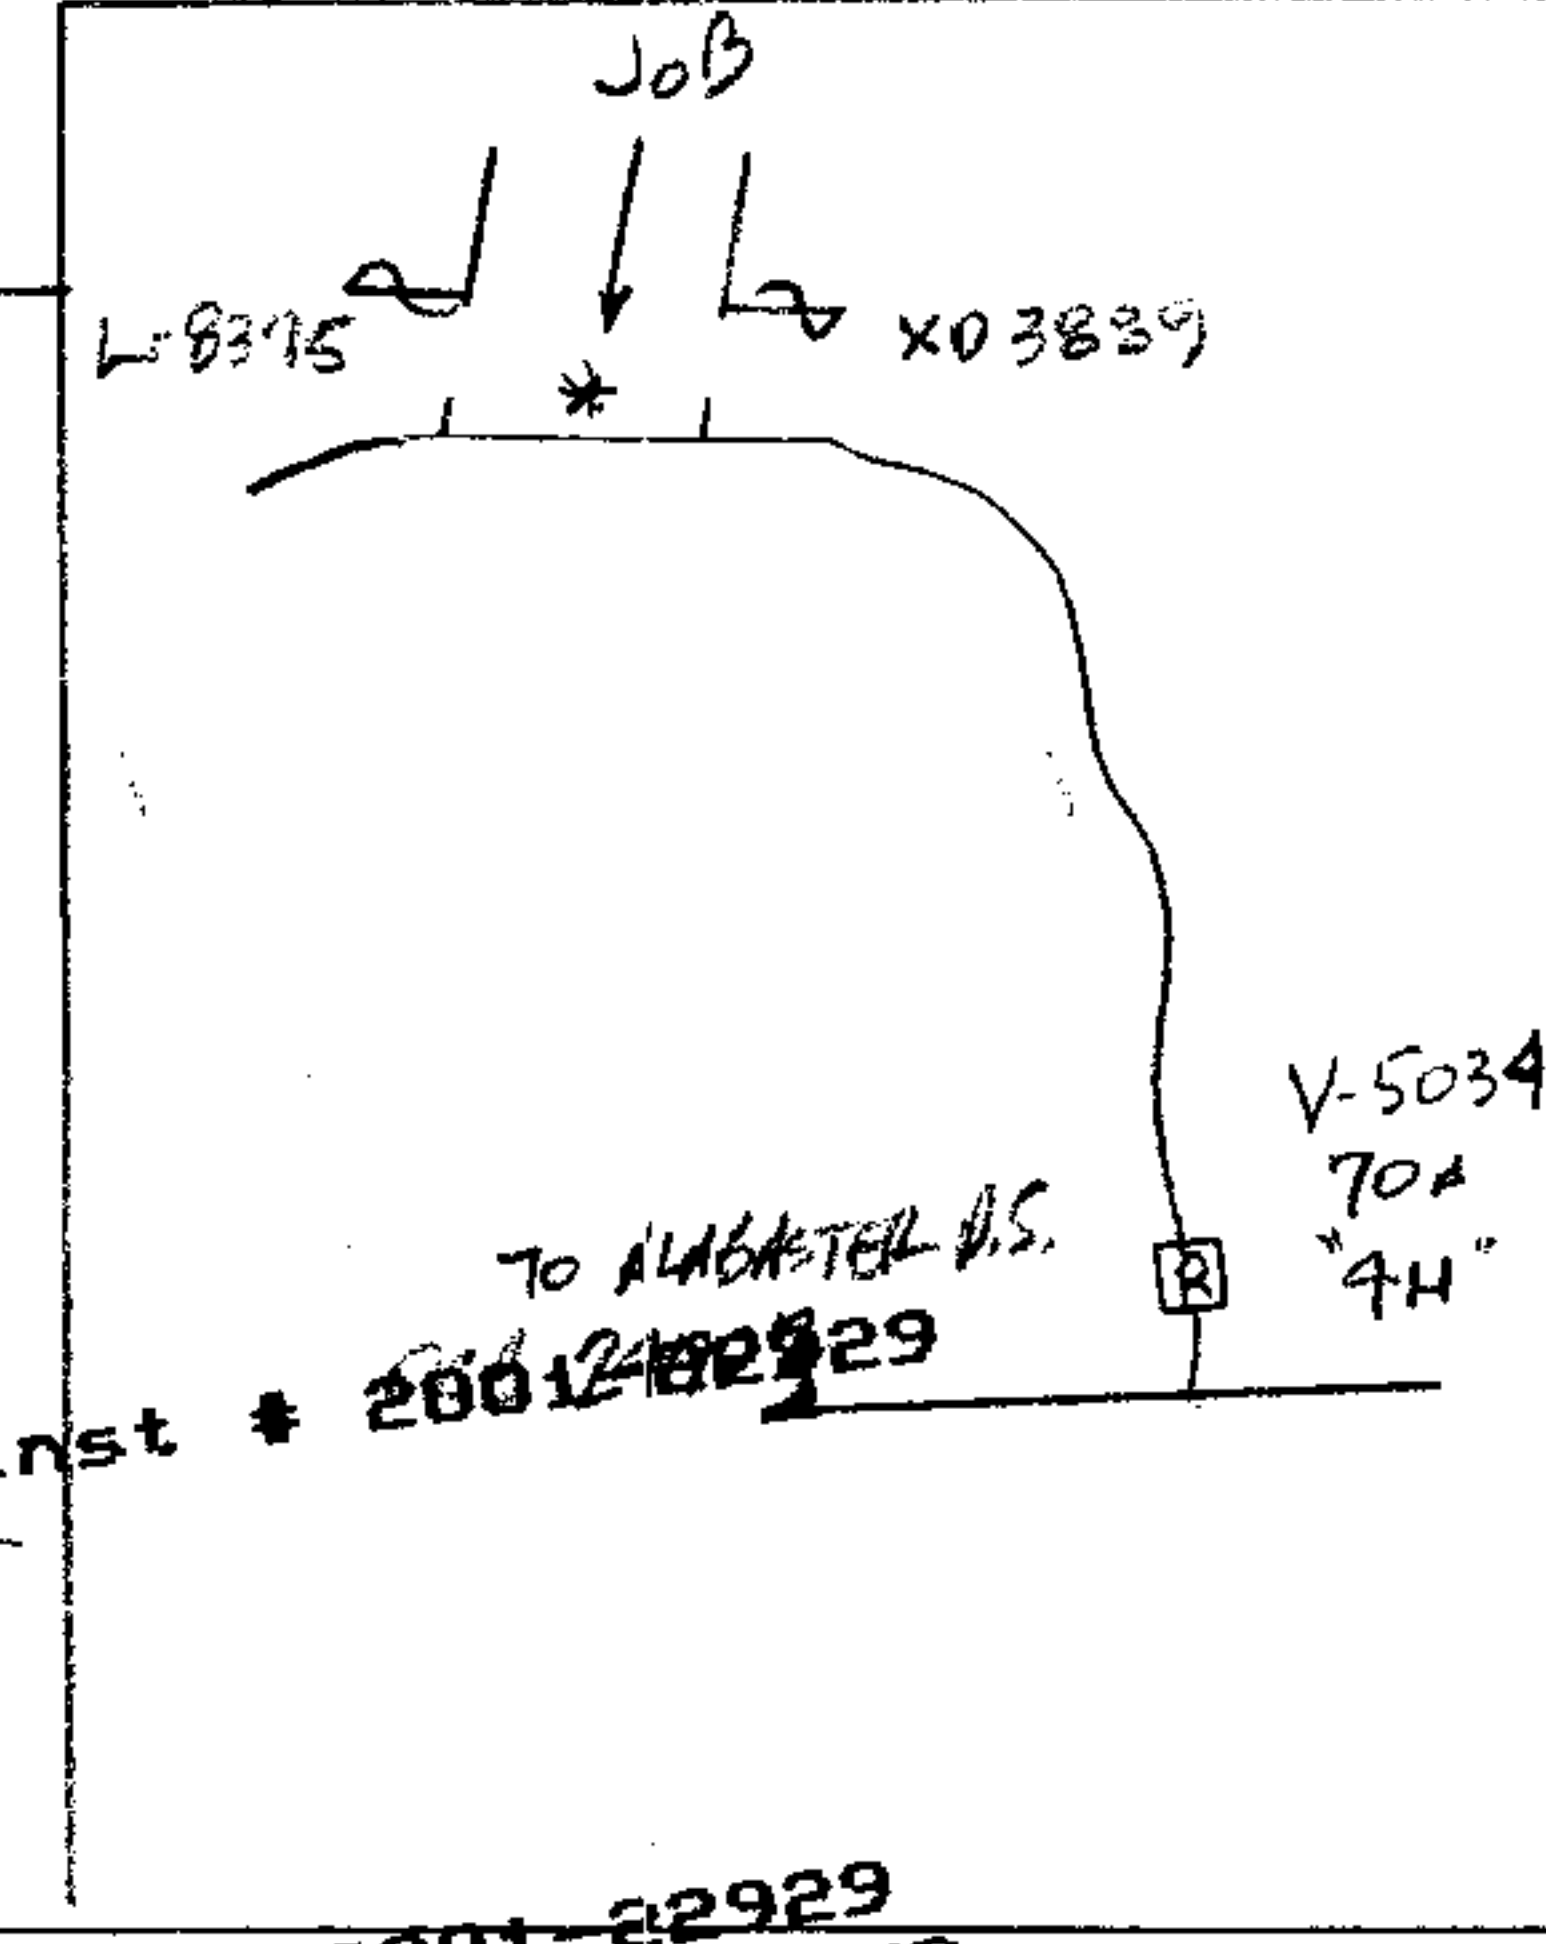 JOB
L-8395
XO3839
*
V-5034
70A
"4H"
TO ALABASTER D.S.
R
Inst # 2001-22929
2001-22929